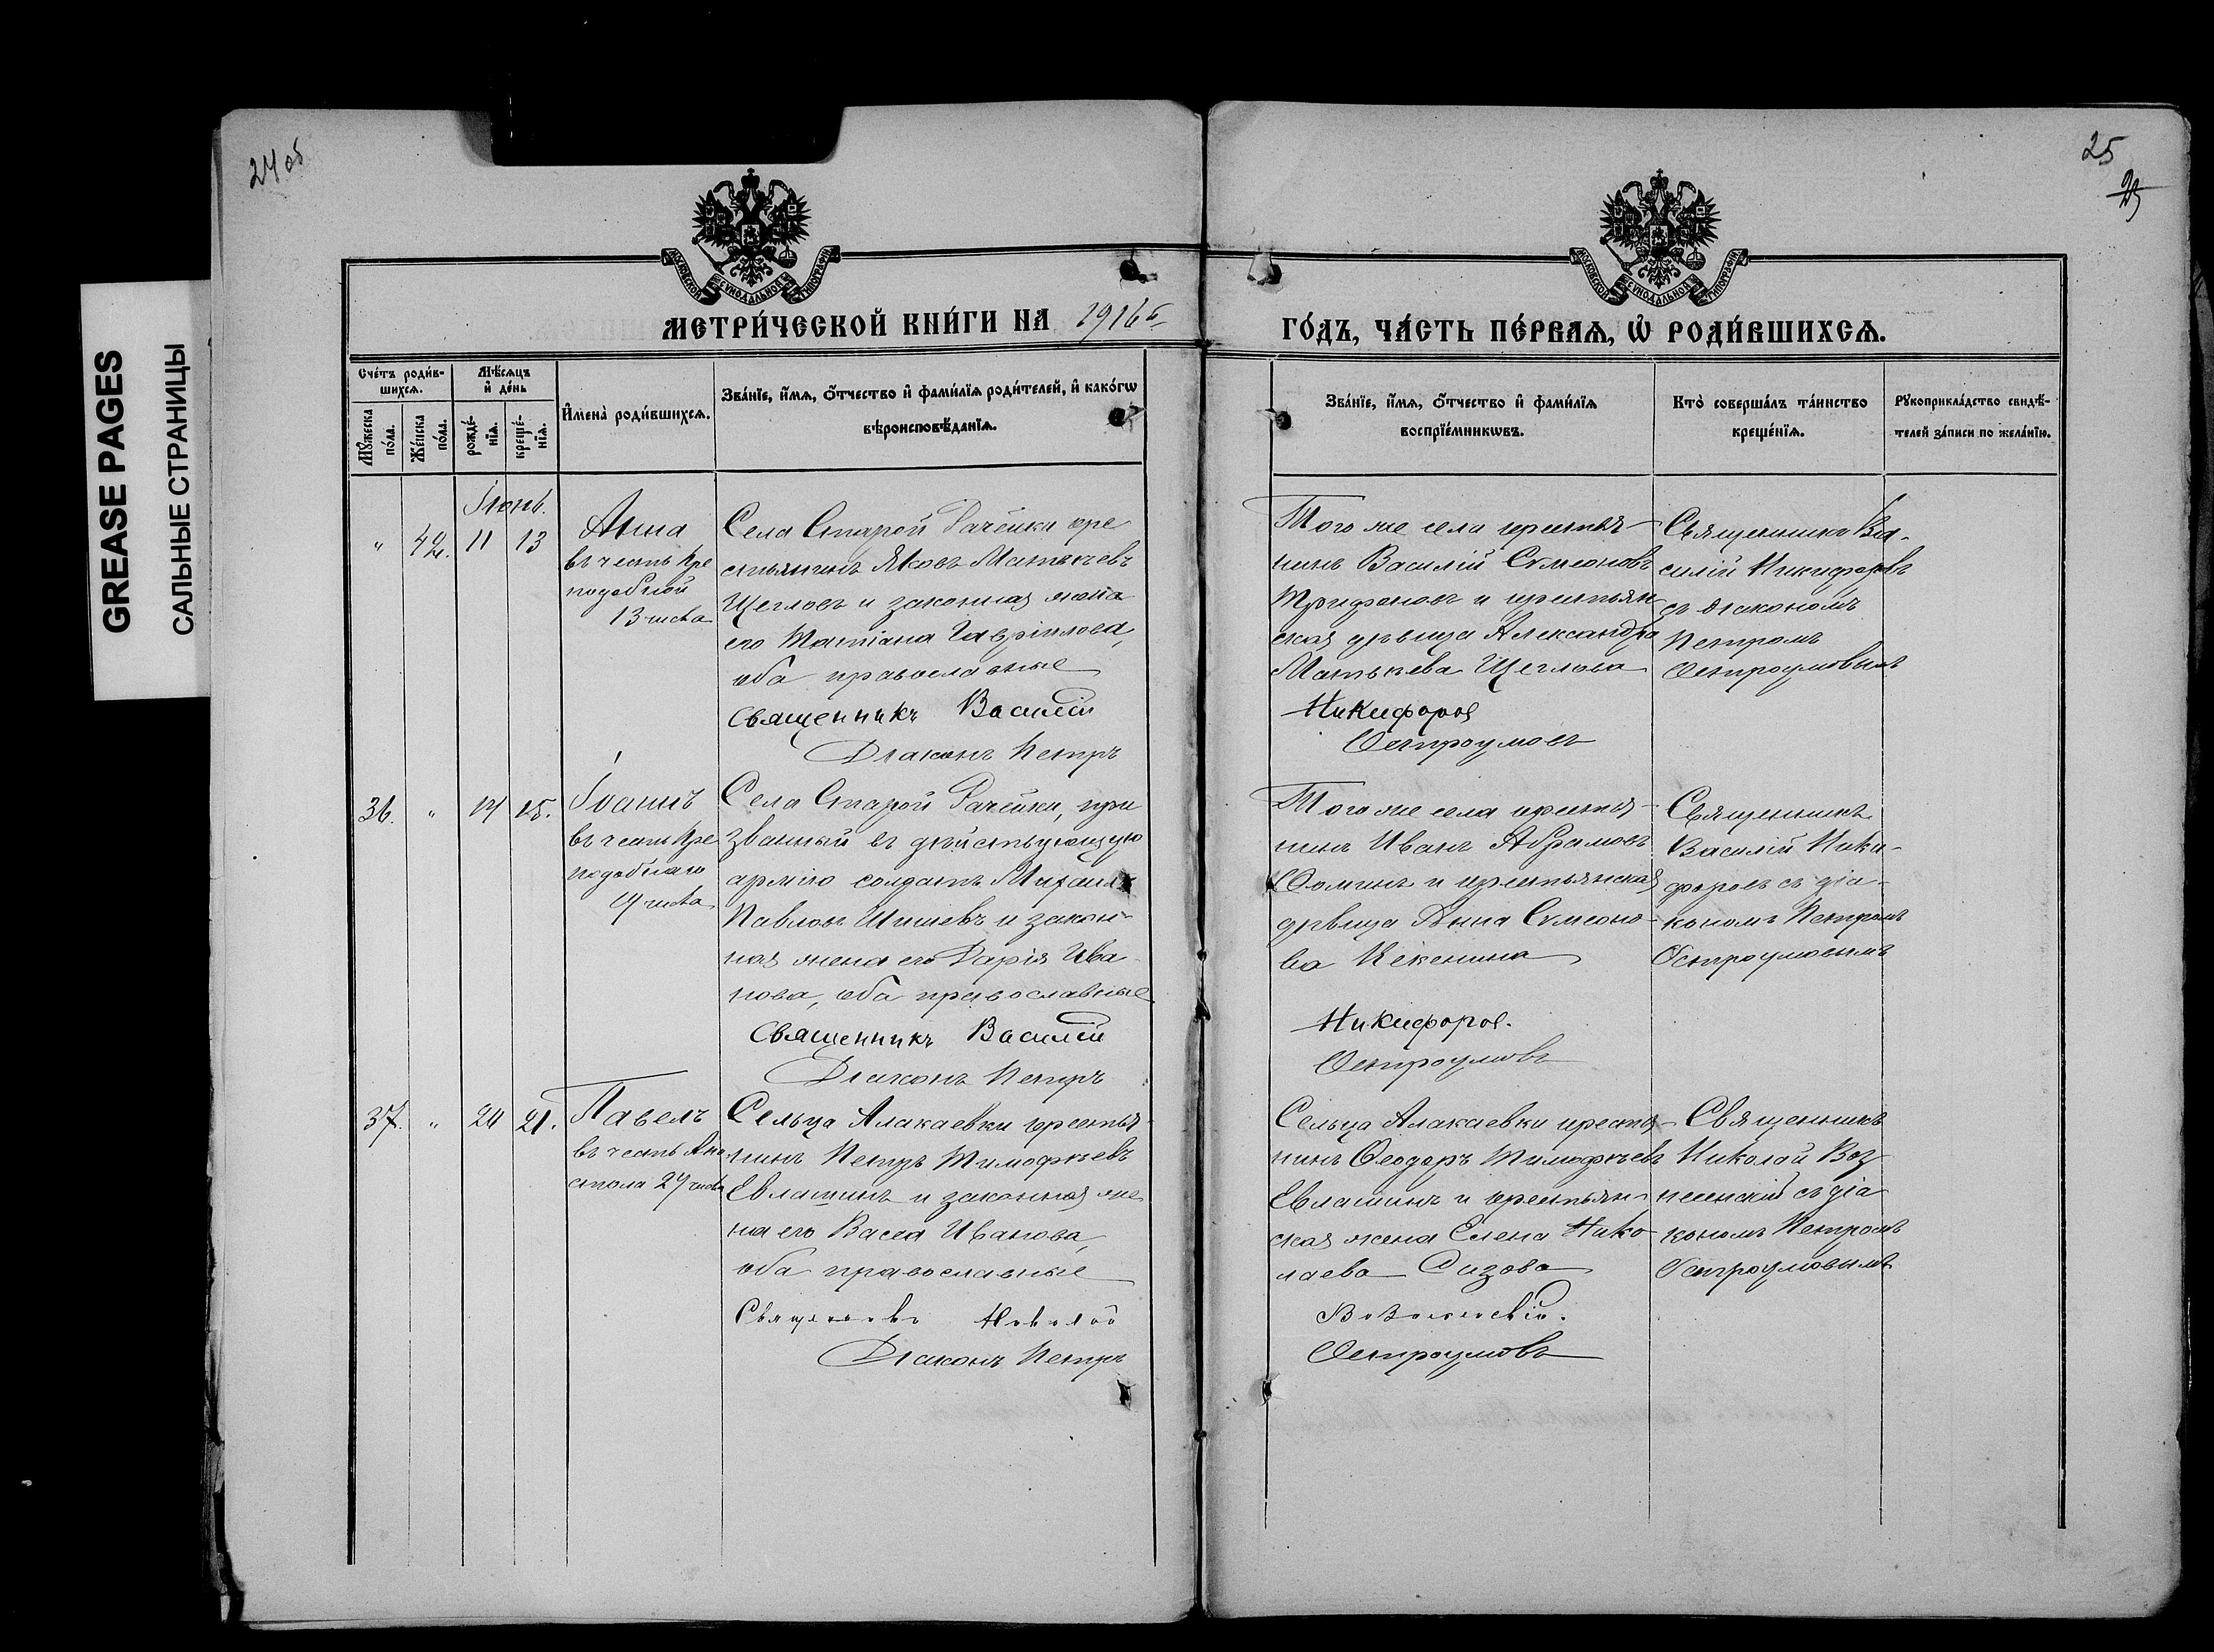 GREASE PAGES
САЛЬНЫЕ СТРАНИЦЫ
24 об
25
МОСКОВСКОЙ СѴНОДАЛЬНОЙ ТИПОГРАФІИ
МОСКОВСКОЙ СѴНОДАЛЬНОЙ ТИПОГРАФІИ
МЕТРИ́ЧЕСКОЙ КНИ́ГИ НА 1916й
ГО́ДЪ, ЧА́СТЬ ПЕ́РВАЯ, Ѡ РОДИ́ВШИХСЯ.
Сче́тъ роди́в-
шихся.
Мѣ́сяцъ
и де́нь
Мꙋжеска
по́ла.
Же́нска
по́ла.
рожде́-
нїя.
креще́-
нїя.
Имена̀ роди́вшихся.
Зва́нїе, и́мя, о́тчество и фами́лїя роди́телей, и како́гѡ
вѣроисповѣ́данїя.
Зва́нїе, и́мя, о́тчество и фами́лїя
воспрїе́мникѡвъ.
Кто̀ соверша́лъ та́инство
креще́нїя.
Рꙋкоприкла́дство свидѣ́-
телей за́писи по жела́нїю.
Іюнь.
" 42. 11 13
Анна
въ честь Пре
подобной
13 числа
Села Старой Рачейки кре
стьянинъ Яковъ Матвѣевъ
Щегловъ и законная жена
его Татіана Гавріилова,
оба православные
Священникъ Василій
Діаконъ Петръ
Того же села крестья-
нинъ Василій Сѵмеоновъ
Трифоновъ и крестьян
ская дѣвица Александра
Матвѣева Щеглова
Никифоров
Остроумовъ
Священникъ Ва-
силій Никифоровъ
съ діакономъ
Петромъ
Остроумовымъ
36. " 14 15.
Іоаннъ
въ честь Пре
подобнаго
19 числа
Села Старой Рачейки, при
званный въ дѣйствующую
армію солдатъ Михаилъ
Павловъ Шишевъ и закон-
ная жена его Дарія Ива
нова, оба православные
Священникъ Василій
Діаконъ Петръ
Того же села крестья-
нинъ Иванъ Абрамовъ
Ѳоминъ и крестьянская
дѣвица Анна Сѵмеоно-
ва Кекенина
Никифоров.
Остроумовъ
Священникъ
Василій Ники-
форовъ съ діа-
кономъ Петромъ
Остроумовымъ
37. " 20 21.
Павелъ
въ честь Апо
стола 29 числа
Сельца Алакаевки крестья-
нинъ Петръ Тимофѣевъ
Евлашинъ и законная же
на его Васса Иванова,
оба православные
Священникъ Николай
Діаконъ Петръ
Сельца Алакаевки крестья-
нинъ Ѳеодоръ Тимофѣевъ
Евлашинъ и крестьян-
ская жена Елена Нико
лаева Сизова
Вознесенскій.
Остроумовъ
Священникъ
Николай Воз
несенскій съ діа
кономъ Петромъ
Остроумовымъ